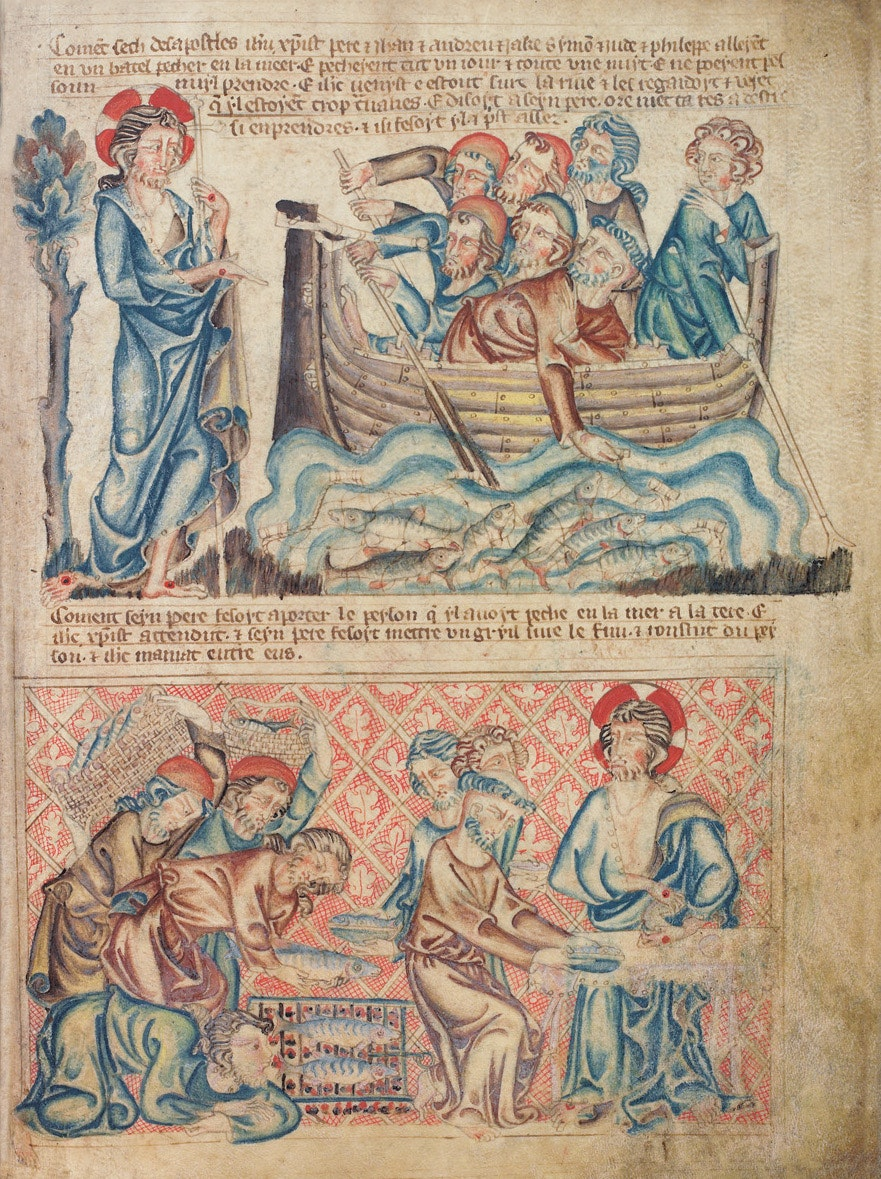 Coment sech desapostles ihu xpist pere & ihan & andreu & jake symõ & jude & phelippe alleient
en un batel pecher en la meer. E pecherent tut un jour & toute une nuyt. E ne poeyent pes
soun nuyl prendre. E ihc venyst e estout sure la rive & les regardoyt & veiet
q̃ yl estoyet trop travles. E disoyt a seyn pere. ore met ta res a destre
si enprendres. & isi fesoyt yl a
Coment seyn Pere fesoyt aporter le peyson q̃ yl avoyt peche en la mer a la tere. E
ihc xpist attendut. & seyn pere fesoyt mettre un gryil sure le fuu. & du pey
son. & ihc maniat entre eus.